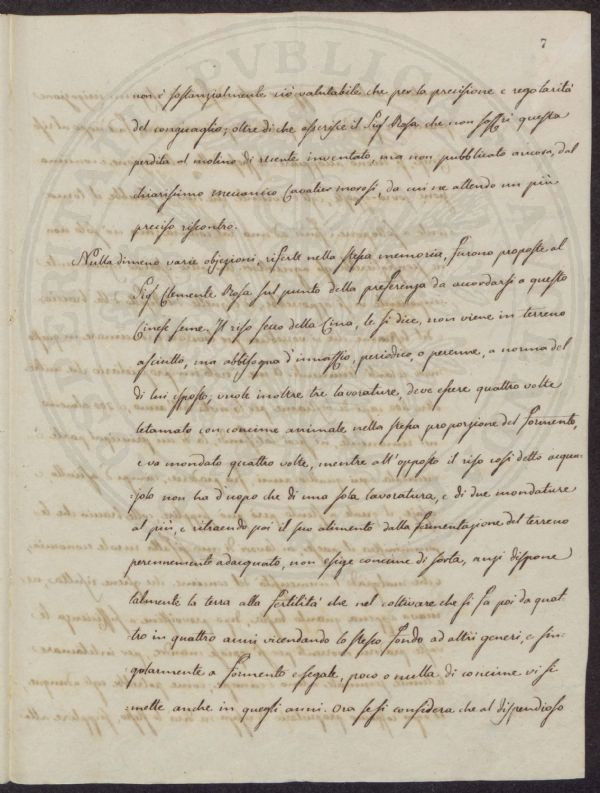 7
non è sostanzialmente ciò valutabile che per la precisione e regolarità
del conguaglio; oltre di che asserisce il Sig. Rosa che non soffrì questa
perdita al molino di recente inventato, ma non pubblicato ancora, dal
chiarissimo meccanico Cavalier Morosi, da cui ne attendo un più
preciso riscontro.
Nulla dimeno varie objezioni, riferte nella stessa memoria, furono proposte al
Sig. Clemente Rosa sul punto della preferenza da accordarsi a questo
Cinese seme. Il riso secco della Cina, le si dice, non viene in terreno
asciutto, ma abbisogna d'innaffio, periodico, o perenne, a norma del
di lui esposto; vuole inoltre tre lavorature, deve essere quattro volte
letamato con concime animale nella stessa proporzione del formento,
e va mondato quattro volte, mentre all'opposto il riso così detto acqua-
-jolo non ha d'uopo che di una sola lavoratura, e di due mondature
al più, e ritraendo poi il suo alimento dalla fermentazione del terreno
perennemente adacquato, non esige concime di sorta, anzi dispone
talmente la terra alla fertilità che nel coltivare che si fa poi da quat-
tro in quattro anni vicendando lo stesso fondo ad altri generi, e sin-
-golarmente a formento e segale, poco o nulla di concime vi si
-mette anche in quegli anni. Ora se si considera che al dispendioso